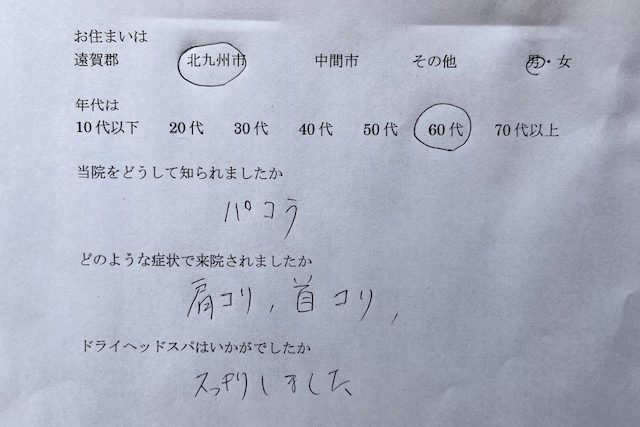 お住まいは
遠賀郡 北九州市 中間市 その他 男・女
年代は
10代以下 20代 30代 40代 50代 60代 70代以上
当院をどうして知られましたか
パコラ
どのような症状で来院されましたか
肩コリ，首コリ，
ドライヘッドスパはいかがでしたか
スッキリしました